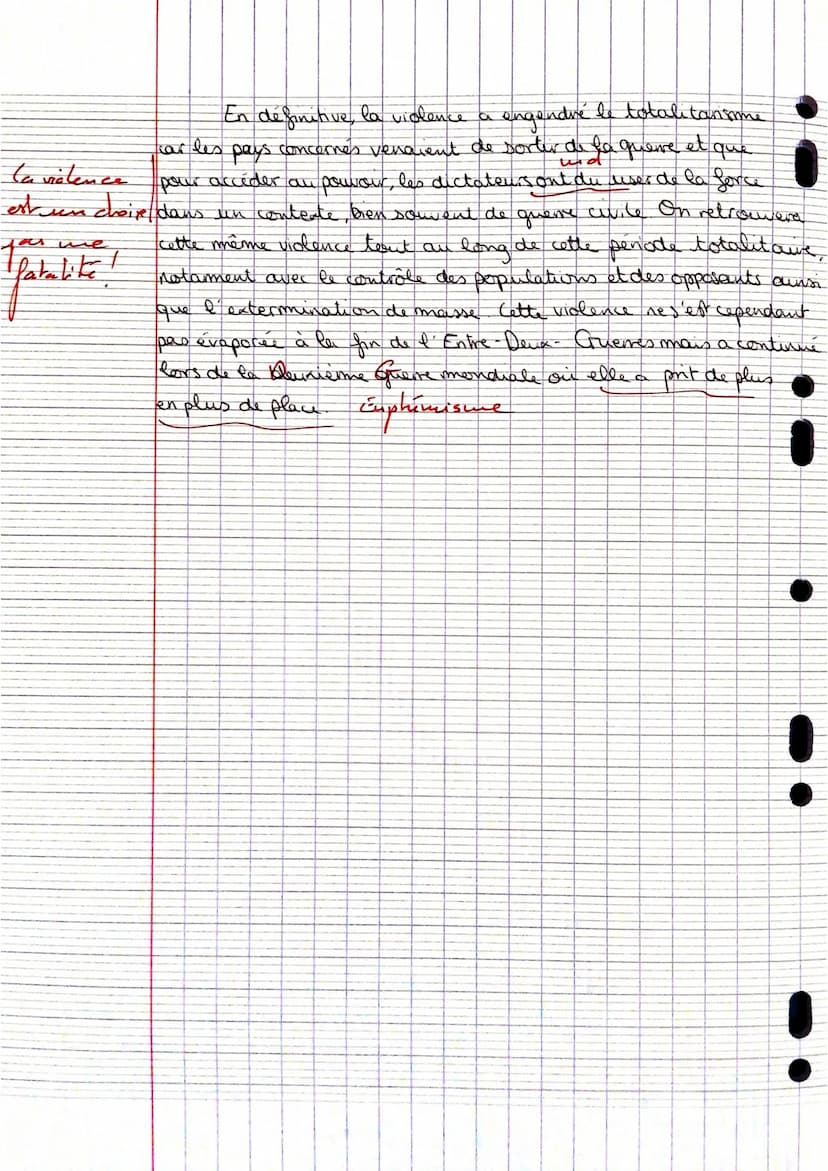 En définitive, la violence a engendré le totalitarisme
car les pays concernés venaient de sortir de la guerre et que
md
pour accéder au pouvoir, les dictateurs ont du user de la force
dans un contexte, bien souvent de guerre civile. On retrouvera
cette même violence tout au long de cette période totalitaire,
notament avec le contrôle des populations et des opposants ainsi
que l'extermination de masse. Cette violence ne s'est cependant
pas évaporée à la fin de l'Entre-Deux-Guerres mais a continué
lors de la Deuxième Guerre mondiale où elle a prit de plus
en plus de place. Euphémisme
La violence
est un choix
pas une
fatalité!